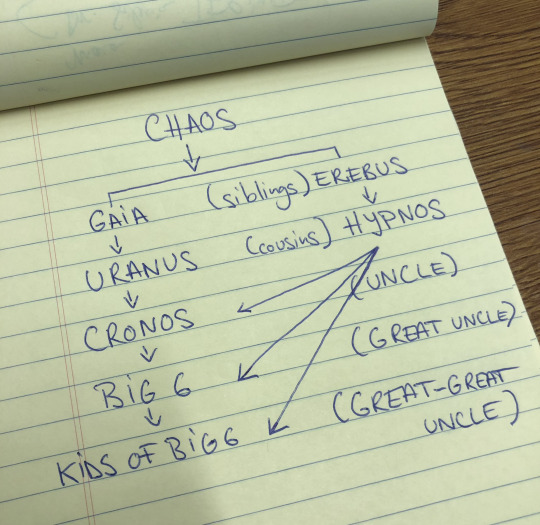 CHAOS
(siblings) EREBUS
GAIA
(cousins) HYPNOS
URANUS
(UNCLE)
CRONOS
(GREAT UNCLE)
BIG 6
(GREAT-GREAT
UNCLE)
KIDS OF BIG 6